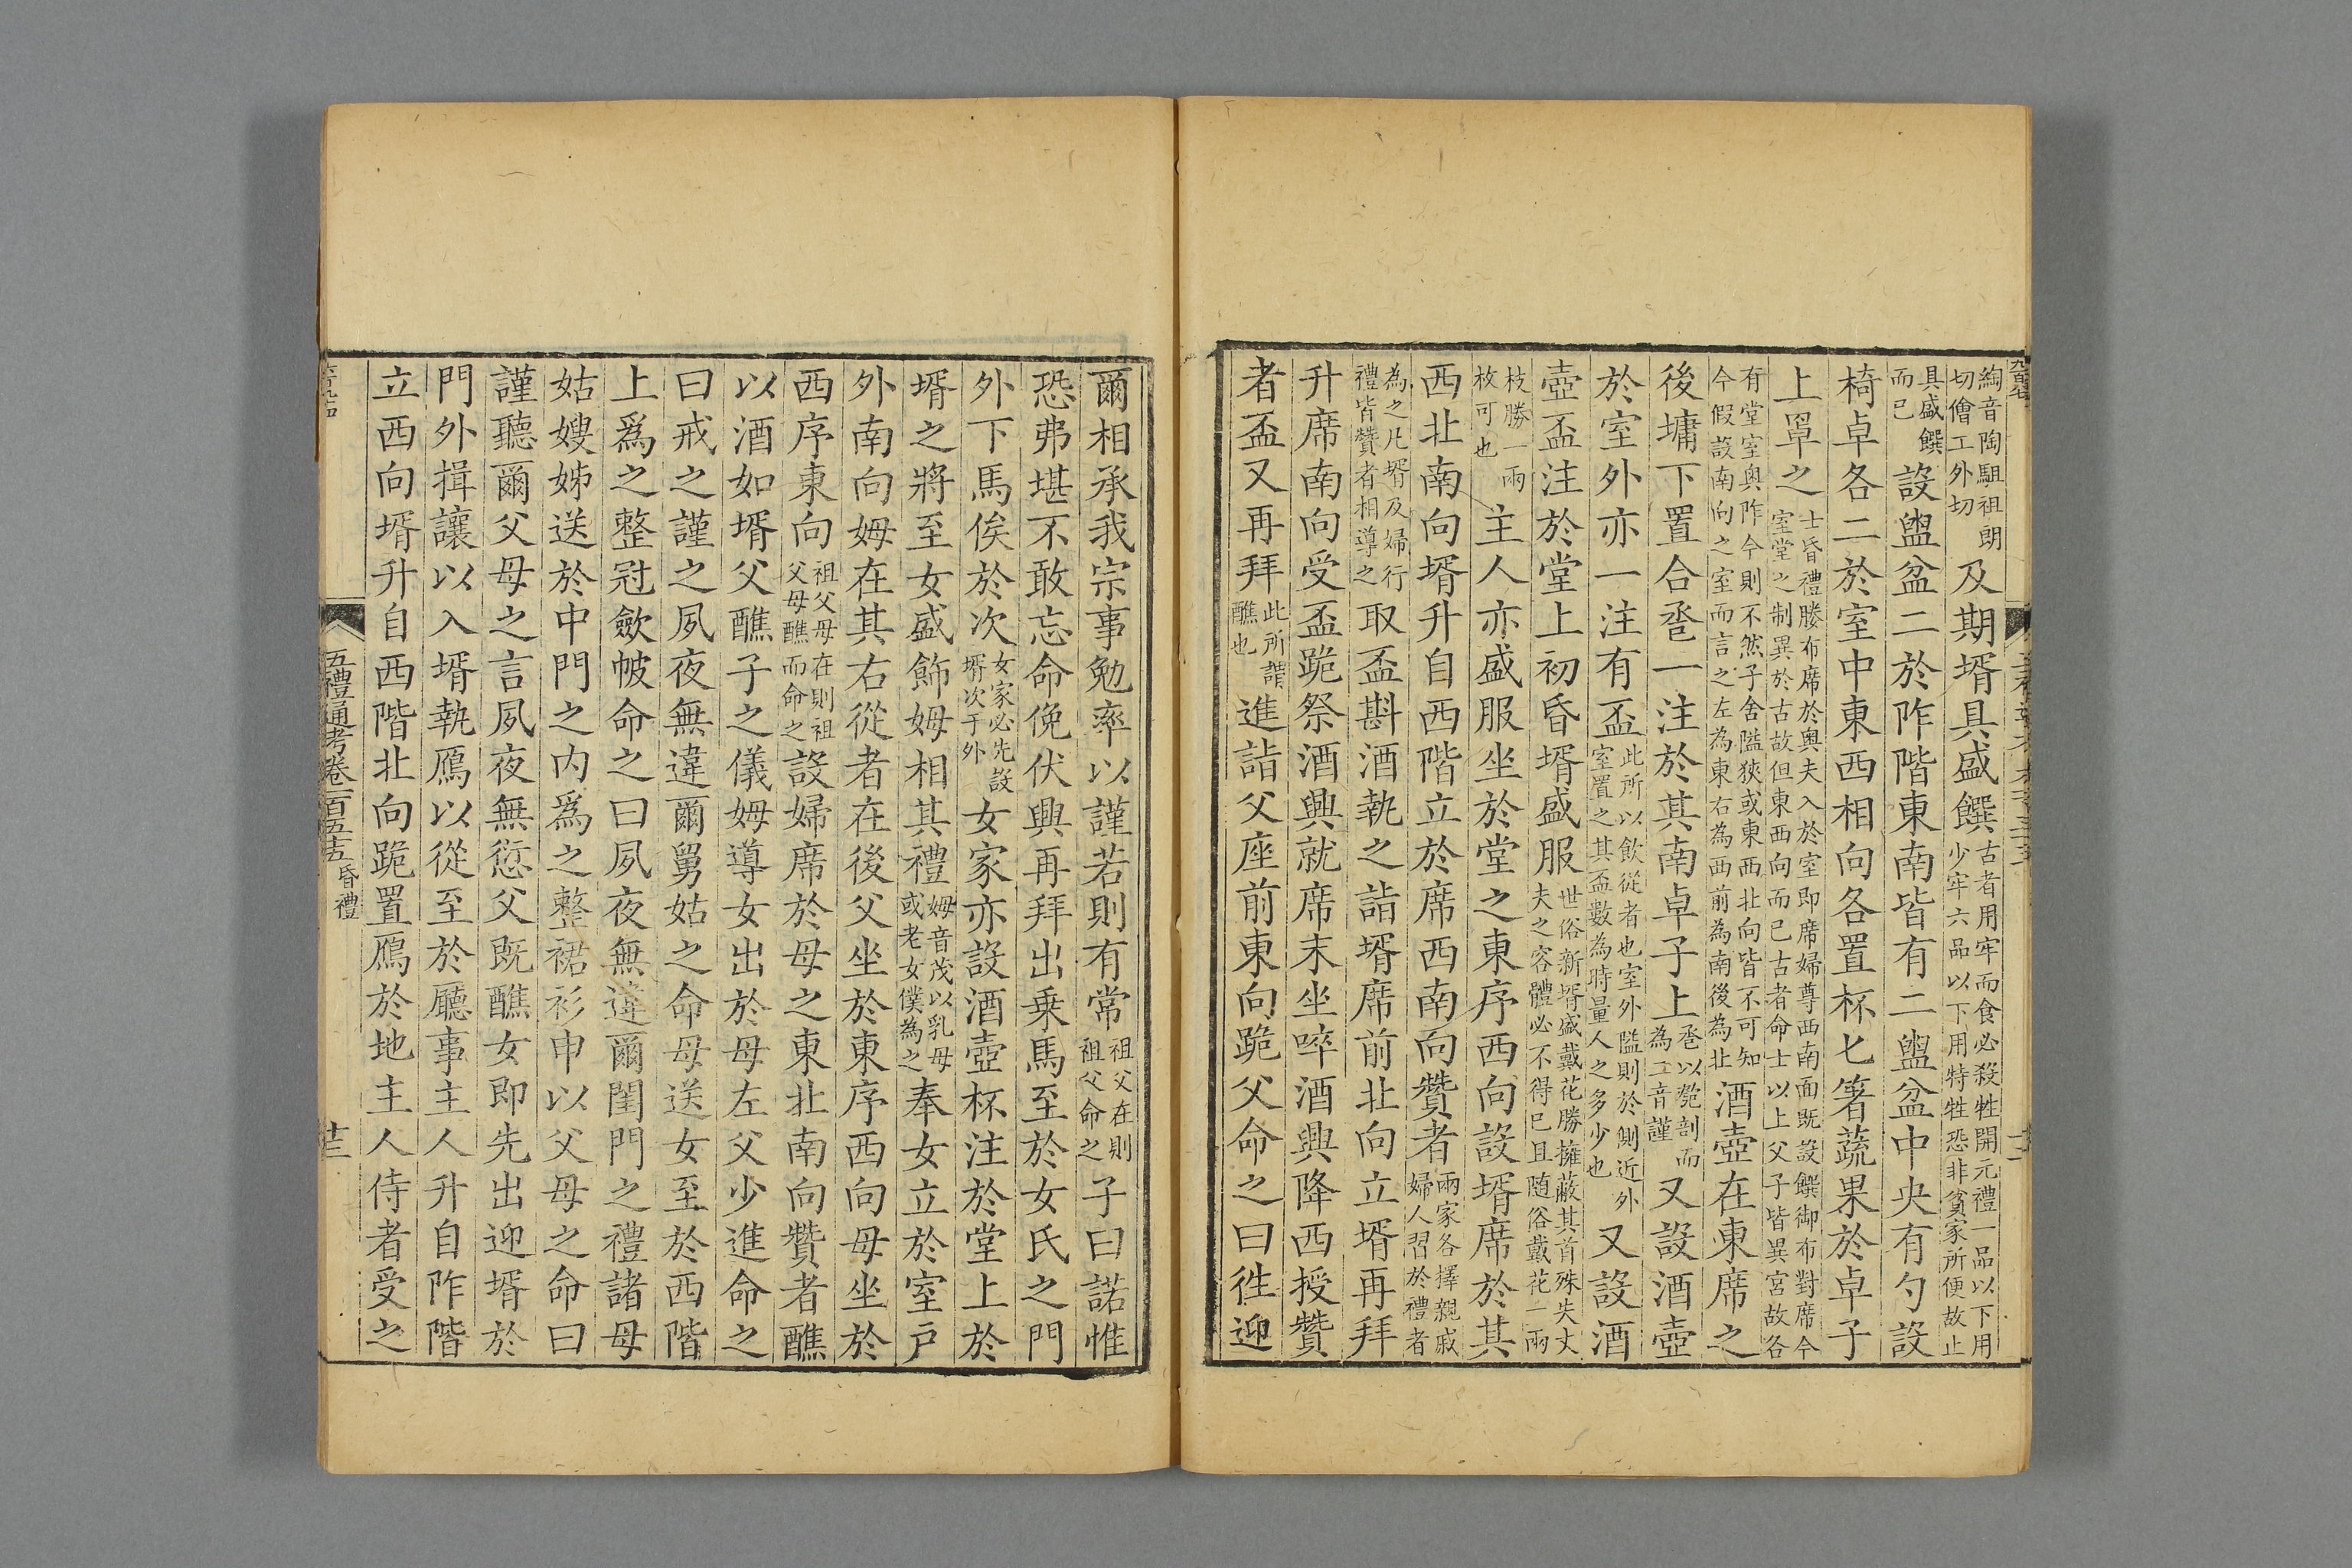 綯音陶駔祖朗
切儈工外切
及期壻具盛饌
古者用牢而食必殺牲開元禮一品以下用
少牢六品以下用特牲恐非貧家所便故止
具盛饌
而已
設盥盆二於阼階東南皆有二盥盆中央有勺設
椅卓各二於室中東西相向各置杯匕箸蔬果於卓子
上罩之
士昏禮媵布席於奧夫入於室即席婦尊西南面既設饌御布對席今
室堂之制異於古故但東西向而已古者命士以上父子皆異宮故各
有堂室奧阼今則不然子舍隘狹或東西北向皆不可知
今假設南向之室而言之左為東右為西前為南後為北
酒壺在東席之
後墉下置合巹一注於其南卓子上
巹以匏剖而
為二音謹
又設酒壺
於室外亦一注有盃
此所以飲從者也室外隘則於側近外
室置之其盃數為時量人之多少也
又設酒
壺盃注於堂上初昏壻盛服
世俗新壻盛戴花勝擁蔽其首殊失丈
夫之容體必不得已且随俗戴花一兩
枝勝一兩
枚可也
主人亦盛服坐於堂之東序西向設壻席於其
西北南向壻升自西階立於席西南向贊者
兩家各擇親戚
婦人習於禮者
為之凡壻及婦行
禮皆贊者相導之
取盃斟酒執之詣壻席前北向立壻再拜
升席南向受盃跪祭酒興就席末坐啐酒興降西授贊
者盃又再拜
此所謂
醮也
進詣父座前東向跪父命之曰徃迎
爾相承我宗事勉率以謹若則有常
祖父在則
祖父命之
子曰諾惟
恐弗堪不敢忘命俛伏興再拜出乗馬至於女氏之門
外下馬俟於次
女家必先設
壻次于外
女家亦設酒壺杯注於堂上於
壻之將至女盛飾姆相其禮
姆音茂以乳母
或老女僕為之
奉女立於室戶
外南向姆在其右從者在後父坐於東序西向母坐於
西序東向
祖父母在則祖
父母醮而命之
設婦席於母之東北南向贊者醮
以酒如壻父醮子之儀姆導女出於母左父少進命之
曰戒之謹之夙夜無違爾舅姑之命母送女至於西階
上爲之整冠歛帔命之曰夙夜無違爾閨門之禮諸母
姑嫂姊送於中門之内爲之整裙衫申以父母之命曰
謹聽爾父母之言夙夜無愆父既醮女即先出迎壻於
門外揖讓以入壻執鴈以從至於廳事主人升自阼階
立西向壻升自西階北向跪置鴈於地主人侍者受之
五禮通考卷一百五十五
昏禮
十三